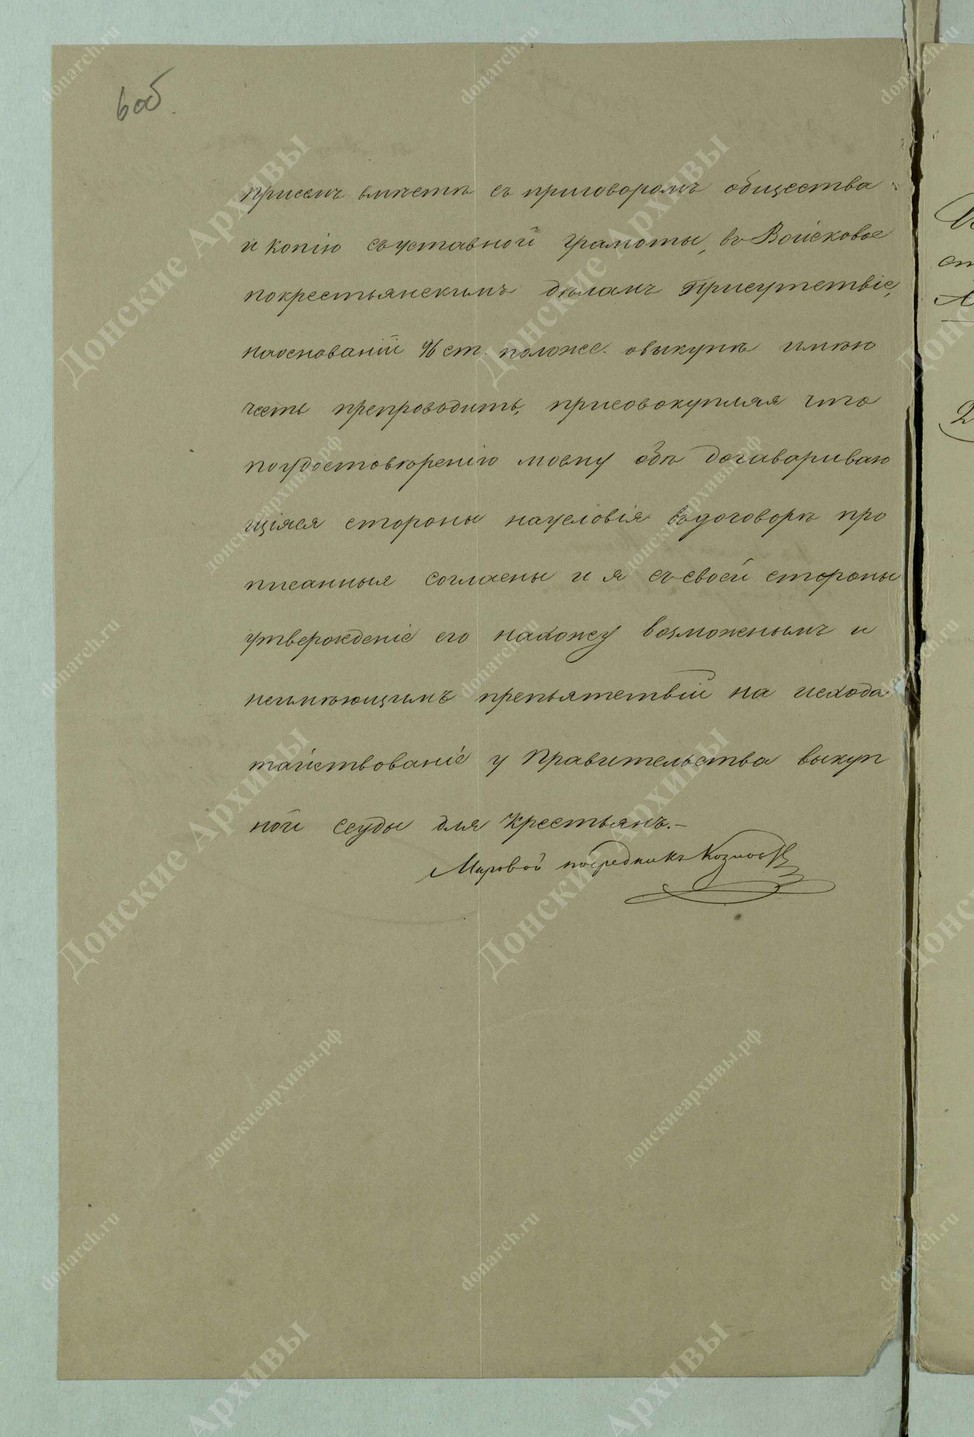 6 об.
присемъ вместѣ съ приговоромъ общества
и копiю съуставной грамоты, въ Войсковое
покрестьянскимъ дѣламъ Присутствiе,
наоснованiи ст. положе. овыкупѣ имѣю
честь препроводить, присовокупляя что
поудостовѣренiю моему обѣ договариваю
щiяся стороны науславiя въдоговорѣ про
писанныя согласны и я съсвоей стороны
утвержденiе его нахожу возможнымъ и
неимѣющимъ препьятствiй на исхода
тайствованiе у Правительства выкуп
ной ссуды для Крестьянъ.–
Мировой посредникъ